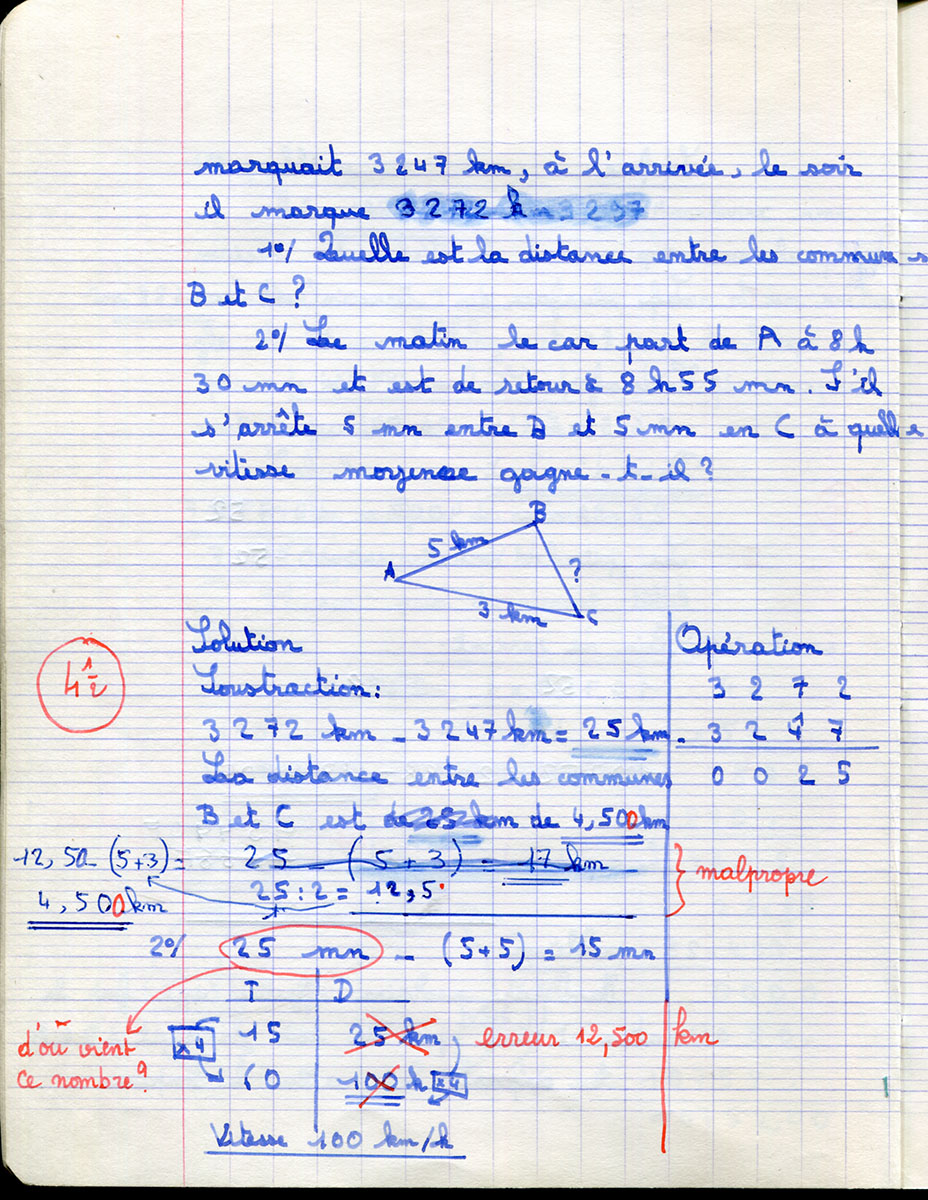 marquait 3247 km, à l'arrivée, le soir
il marque 3272 k 3297
1°/ Quelle est la distance entre les communes
B et C ?
2°/ Le matin le car part de A à 8h
30 mn et est de retour à 8h55 mn. S'il
s'arrête 5 mn entre B et 5 mn en C à quelle
vitesse moyenne gagne-t-il ?
B
5 km
A
?
3 km
C
4 1/2
Solution
Opération
Soustraction :
3 2 7 2
3272 km - 3247 km = 25 km
- 3 2 4 7
La distance entre les communes
0 0 2 5
B et C est de 25 km de 4,500km
12,50 - (5+3) =
25 - (5+3) = 17 km
malpropre
4,500km
25 : 2 = 12,5
2°/ 25 mn - (5+5) = 15 mn
T D
d'où vient
ce nombre?
x4 15 25 km erreur 12,500 km
60 100 k x4
Vitesse 100 km/h